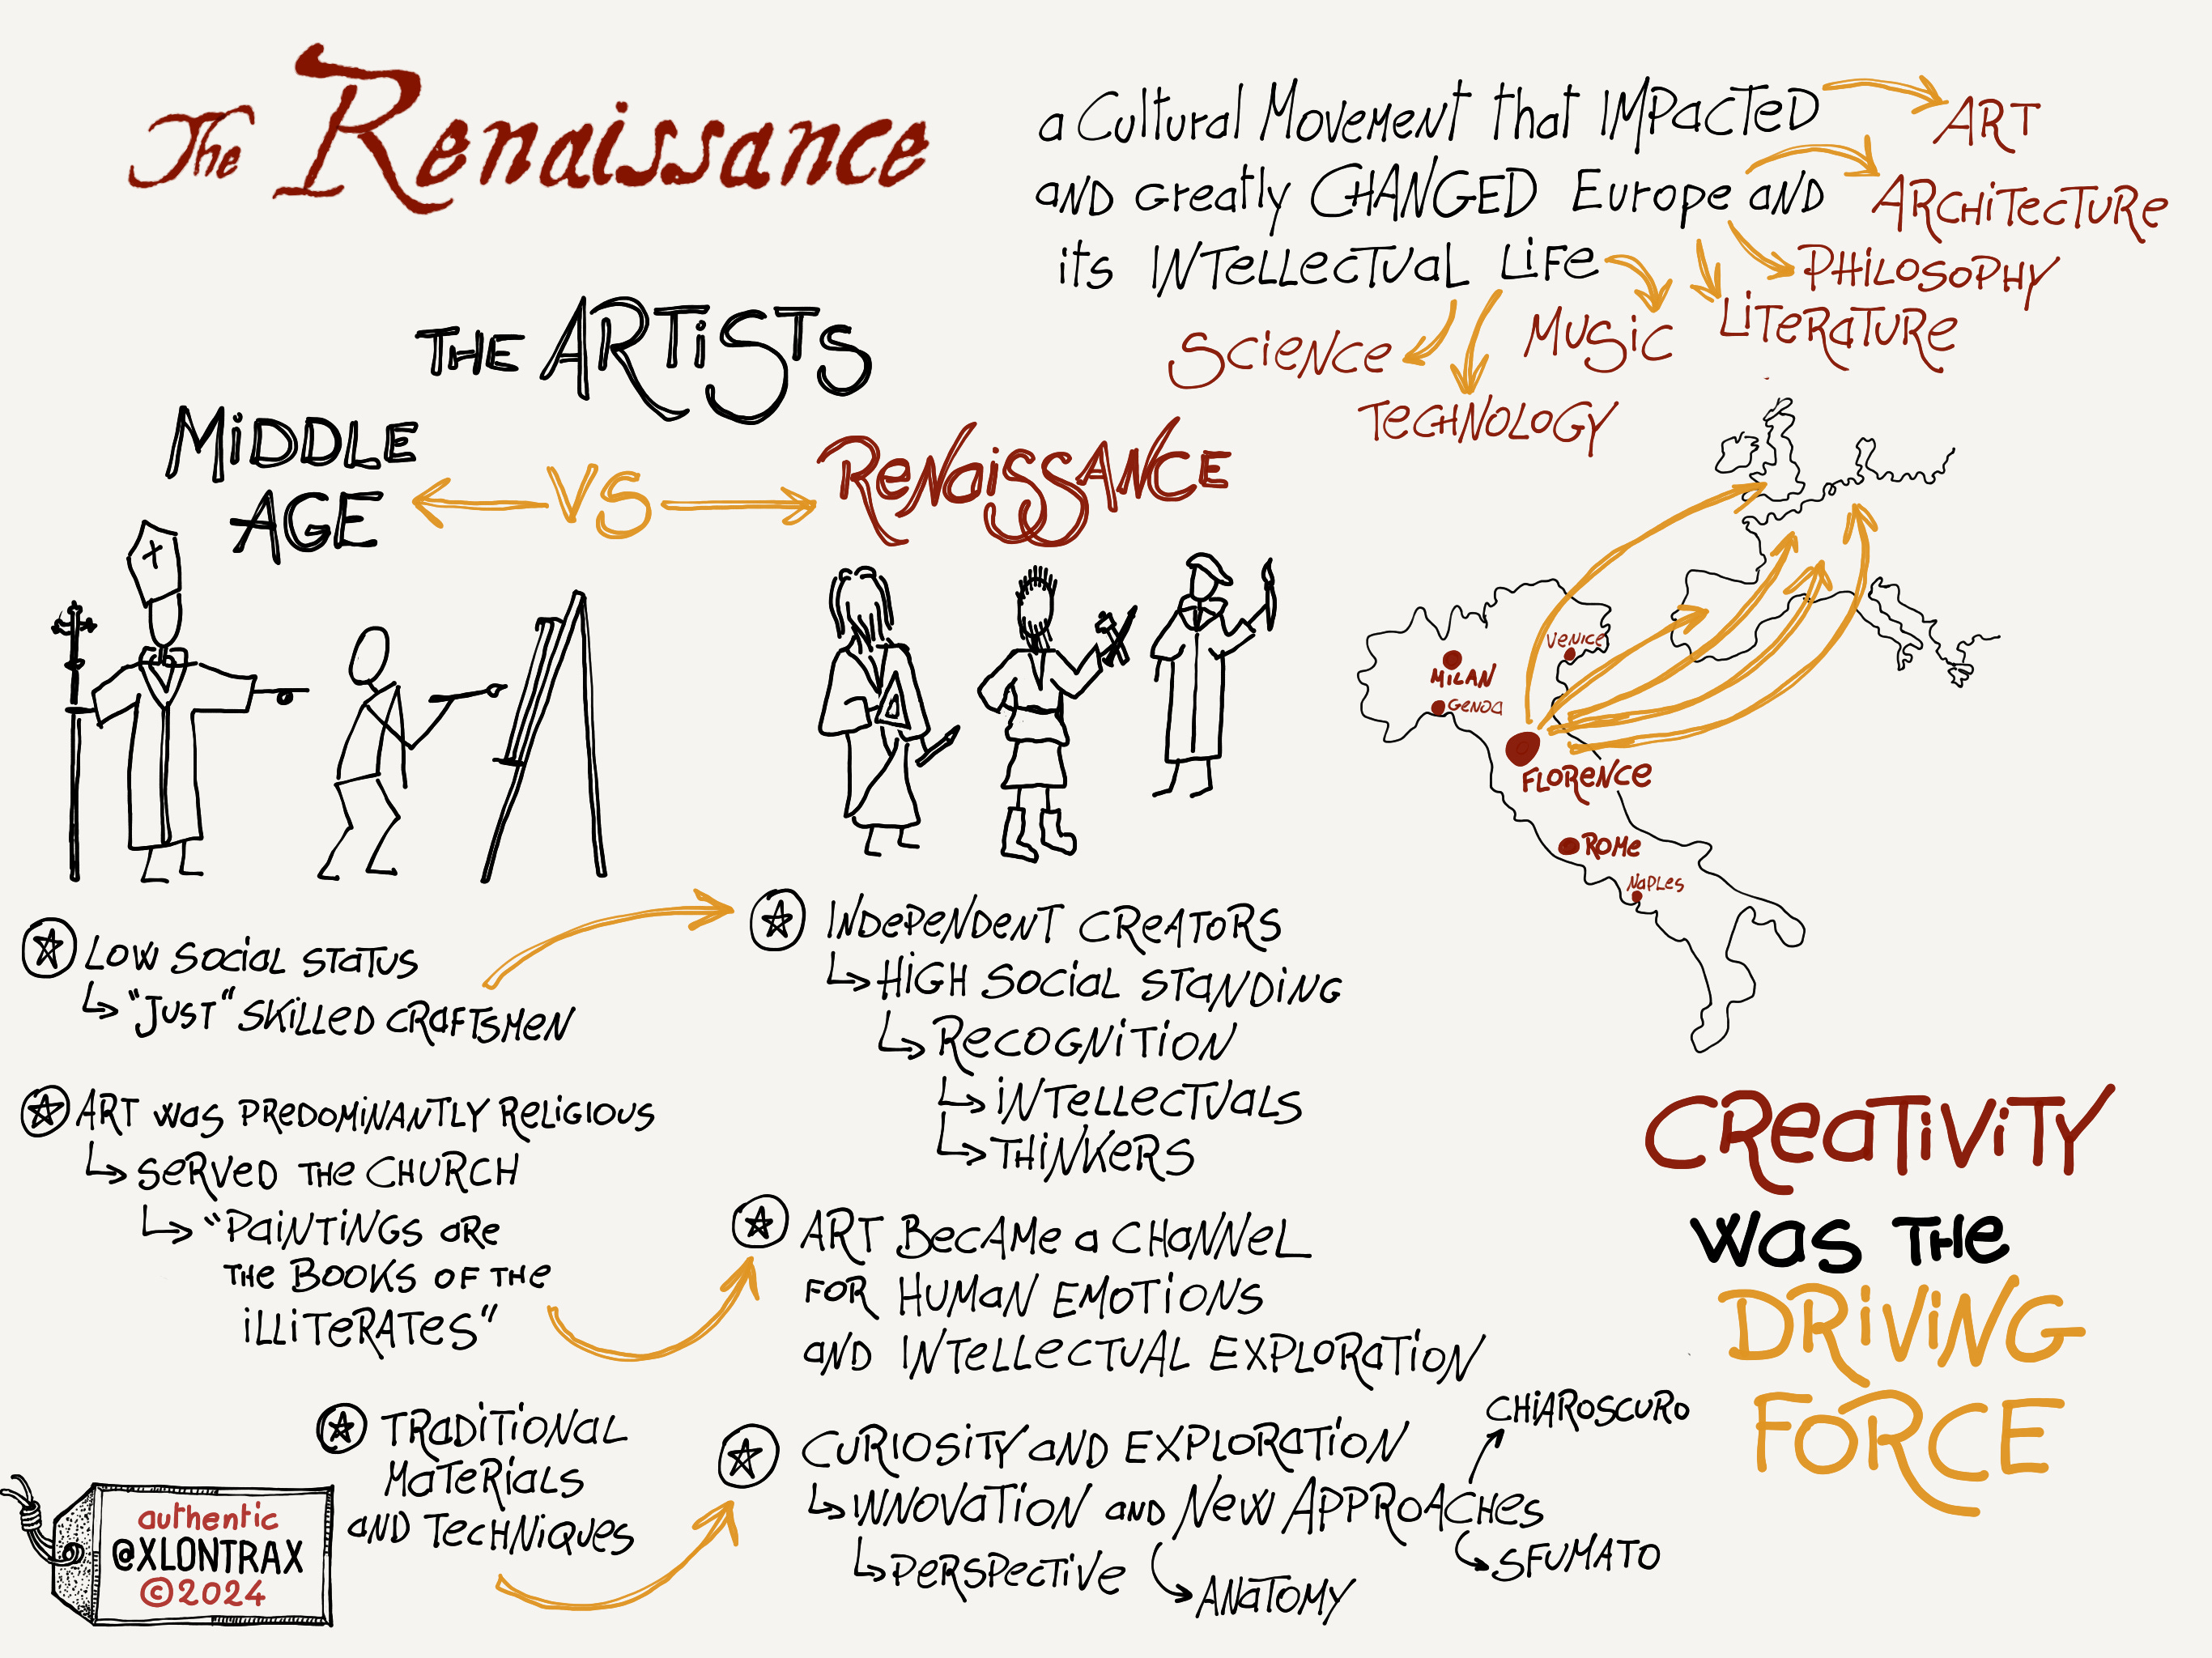 The Renaissance
a Cultural Movement that IMPACTED
AND Greatly CHANGED Europe AND
its INTELLECTUAL LIFE
ART
ARCHITECTURE
PHILOSOPHY
LITERATURE
MUSIC
SCIENCE
TECHNOLOGY
THE ARTISTS
MIDDLE
AGE
VS
RENAISSANCE
LOW SOCIAL STATUS
"JUST" SKILLED CRAFTSMEN
ART WAS PREDOMINANTLY RELIGIOUS
SERVED THE CHURCH
"PAINTINGS ARE
THE BOOKS OF THE
ILLITERATES"
TRADITIONAL
MATERIALS
AND TECHNIQUES
INDEPENDENT CREATORS
HIGH SOCIAL STANDING
RECOGNITION
INTELLECTUALS
THINKERS
ART BECAME A CHANNEL
FOR HUMAN EMOTIONS
AND INTELLECTUAL EXPLORATION
CURIOSITY AND EXPLORATION
INNOVATION AND NEW APPROACHES
CHIAROSCURO
SFUMATO
PERSPECTIVE
ANATOMY
VENICE
MILAN
GENOA
FLORENCE
ROME
NAPLES
CREATIVITY
WAS THE
DRIVING
FORCE
authentic
@XLONTRAX
©2024